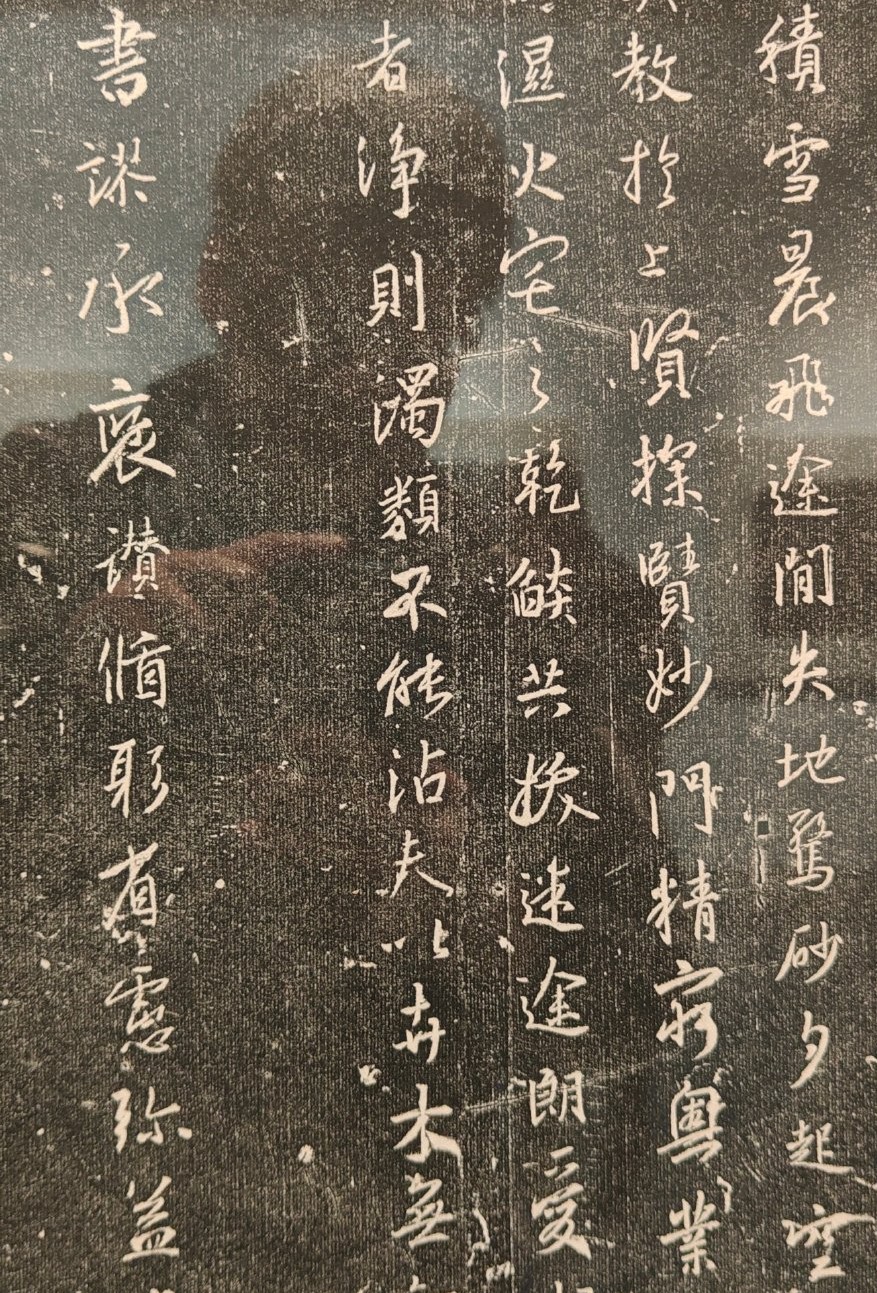 積雪晨飛途間失地驚砂夕起空
教於上賢探賾妙門精窮奧業
濕火宅之乾燄共拔迷途朗愛
者淨則濁類不能沾夫以卉木無
書謬承褒讃循躬省慮弥益